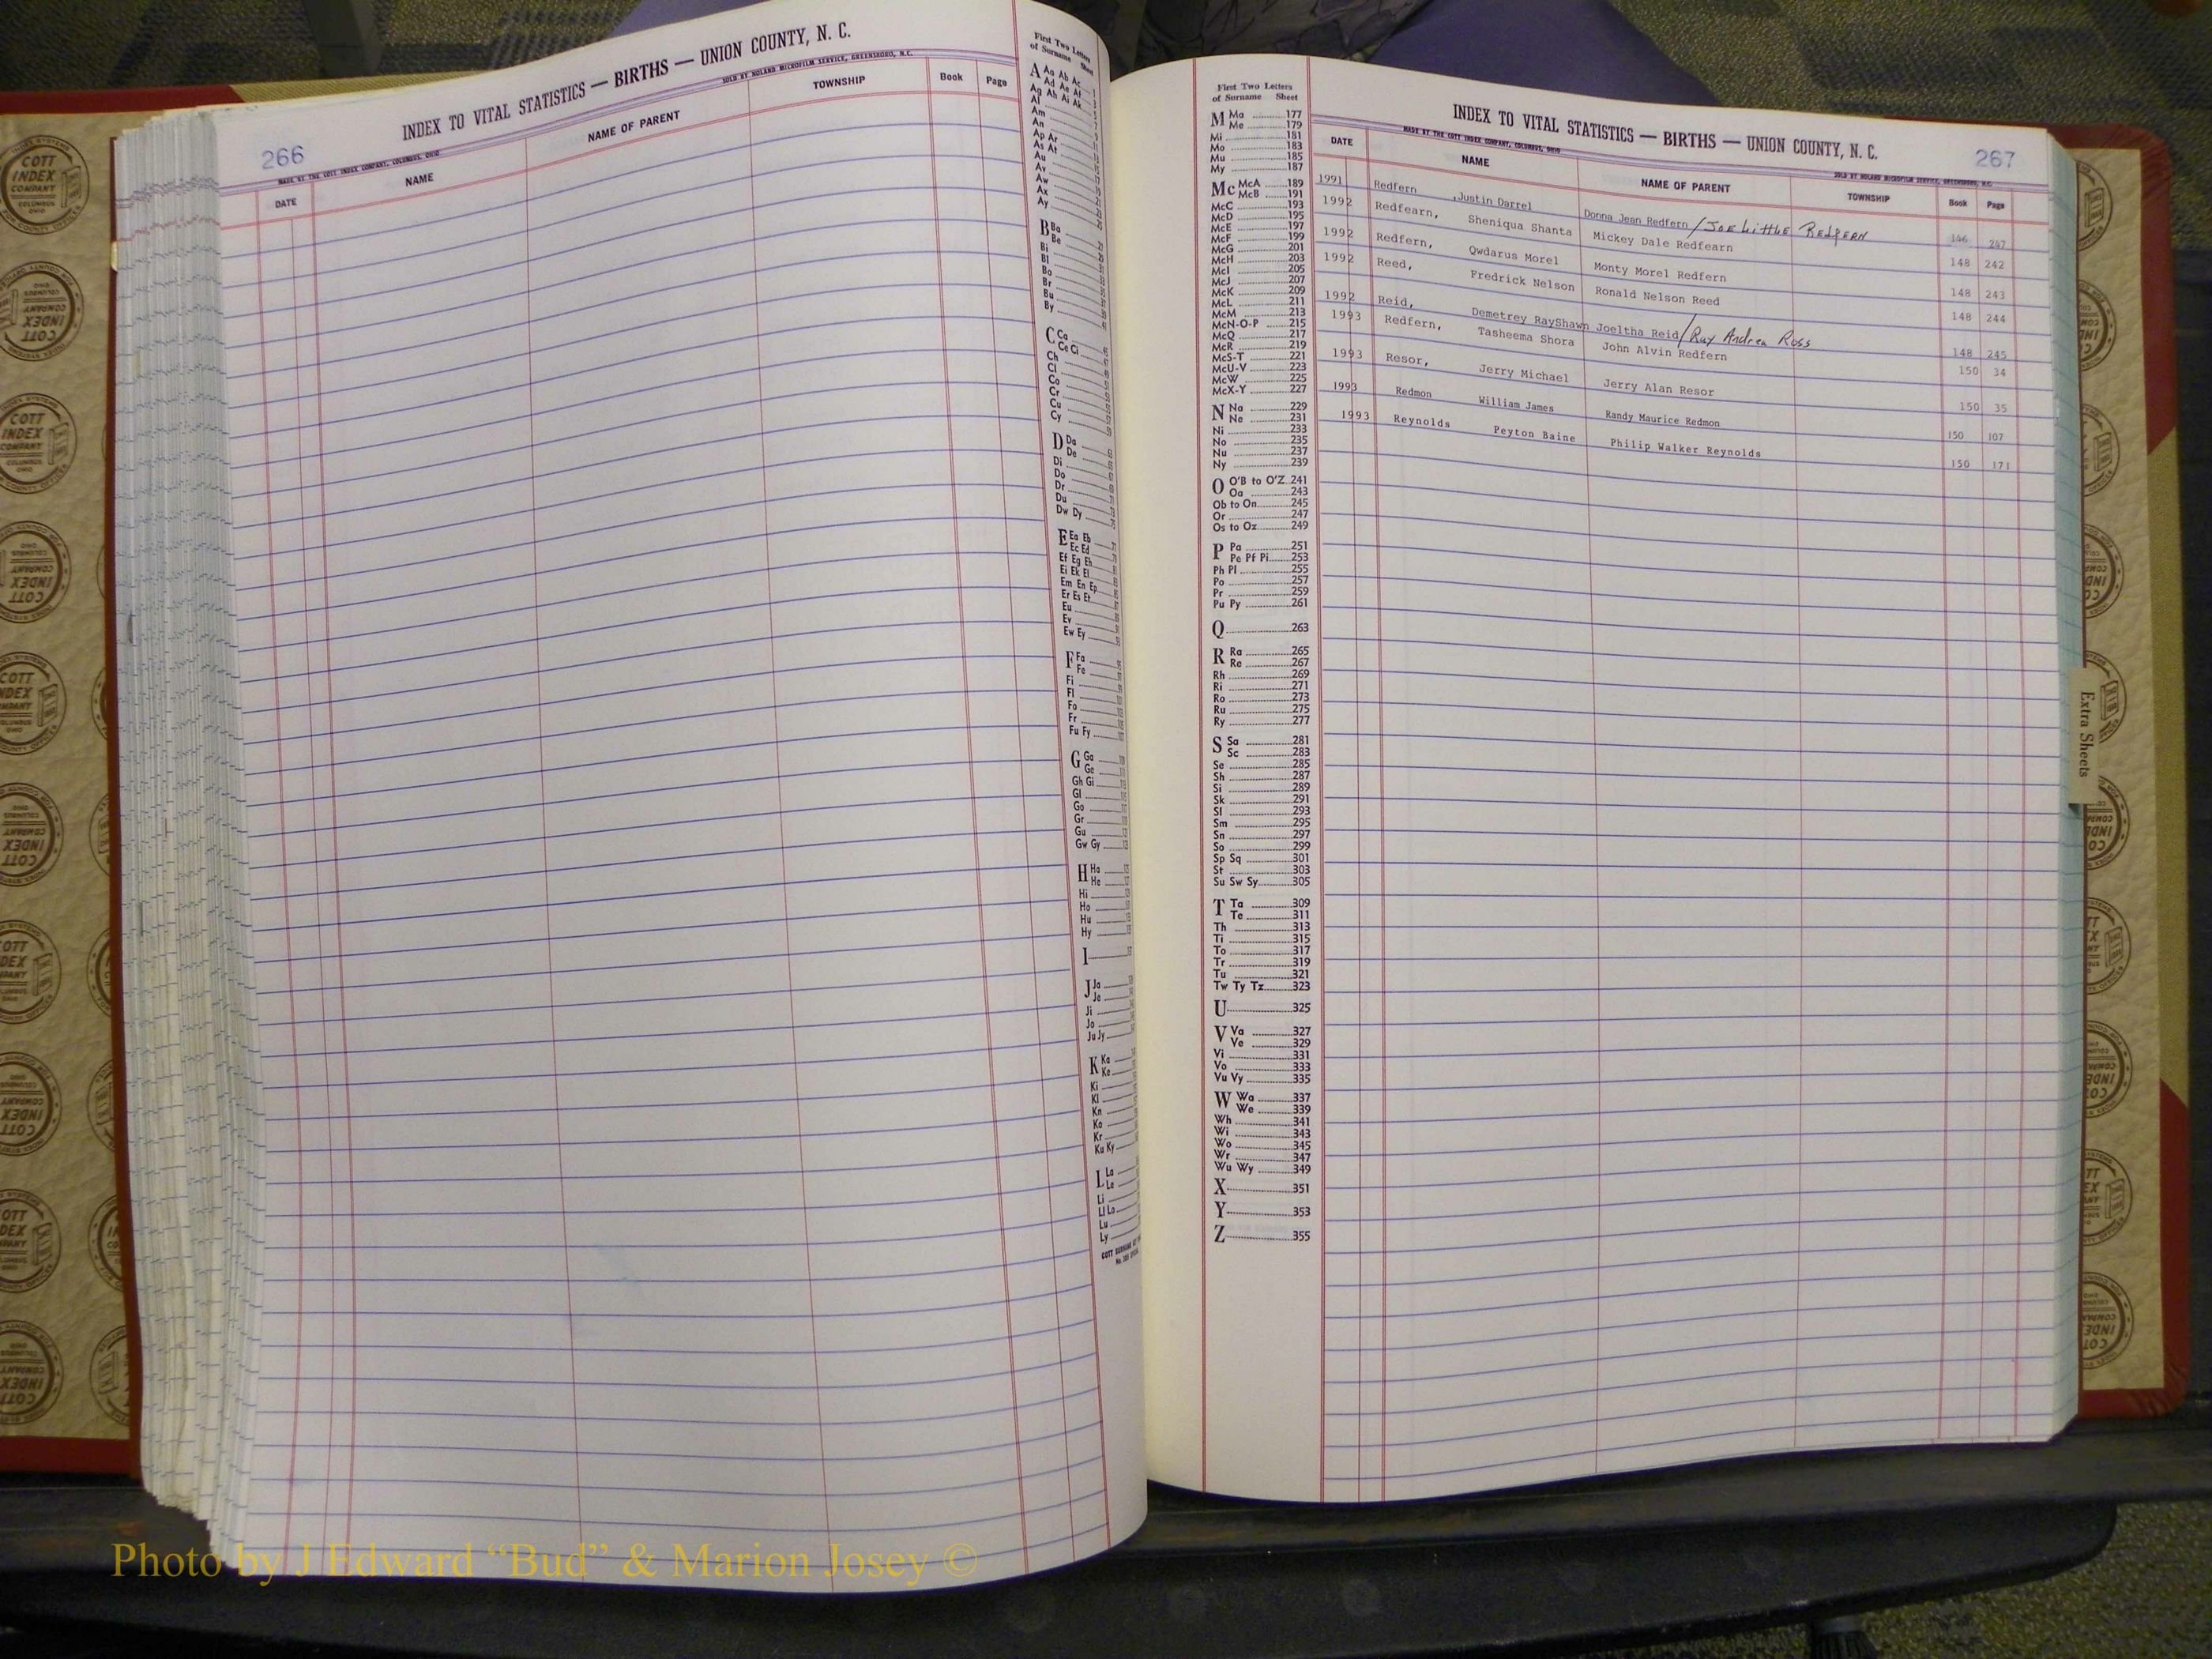 266
INDEX TO VITAL STATISTICS — BIRTHS — UNION COUNTY, N. C.
MADE BY THE COTT INDEX COMPANY, COLUMBUS, OHIO
SOLD BY NOLAND MICROFILM SERVICE, GREENSBORO, N.C.
DATE NAME NAME OF PARENT TOWNSHIP Book Page
First Two Letters
of Surname Sheet
A Aa Ab Ac
Ad Ae Af
Ag Ah Ai Ak
Al
Am
An
Ap Ar
As At
Au
Av
Aw
Ax
Ay
B Ba
Be
Bi
Bl
Bo
Br
Bu
By
C Ca
Ce Ci
Ch
Cl
Co
Cr
Cu
Cy
D Da
De
Di
Do
Dr
Du
Dw Dy
E Ea Eb
Ec Ed
Ef Eg Eh
Ei Ek El
Em En Ep
Er Es Et
Eu
Ev
Ew Ey
F Fa
Fe
Fi
Fl
Fo
Fr
Fu Fy
G Ga
Ge
Gh Gi
Gl
Go
Gr
Gu
Gw Gy
H Ha
He
Hi
Ho
Hu
Hy
I
J Ja
Je
Ji
Jo
Ju Jy
K Ka
Ke
Ki
Kl
Kn
Ko
Kr
Ku Ky
L La
Le
Li
Ll Lo
Lu
Ly
First Two Letters
of Surname Sheet
M Ma 177
Me 179
Mi 181
Mo 183
Mu 185
My 187
Mc McA 189
McB 191
McC 193
McD 195
McE 197
McF 199
McG 201
McH 203
McI 205
McJ 207
McK 209
McL 211
McM 213
McN-O-P 215
McQ 217
McR 219
McS-T 221
McU-V 223
McW 225
McX-Y 227
N Na 229
Ne 231
Ni 233
No 235
Nu 237
Ny 239
O O'B to O'Z 241
Oa 243
Ob to On 245
Or 247
Os to Oz 249
P Pa 251
Pe Pf Pi 253
Ph Pl 255
Po 257
Pr 259
Pu Py 261
Q 263
R Ra 265
Re 267
Rh 269
Ri 271
Ro 273
Ru 275
Ry 277
S Sa 281
Sc 283
Se 285
Sh 287
Si 289
Sk 291
Sl 293
Sm 295
Sn 297
So 299
Sp Sq 301
St 303
Su Sw Sy 305
T Ta 309
Te 311
Th 313
Ti 315
To 317
Tr 319
Tu 321
Tw Ty Tz 323
U 325
V Va 327
Ve 329
Vi 331
Vo 333
Vu Vy 335
W Wa 337
We 339
Wh 341
Wi 343
Wo 345
Wr 347
Wu Wy 349
X 351
Y 353
Z 355
INDEX TO VITAL STATISTICS — BIRTHS — UNION COUNTY, N. C.
267
MADE BY THE COTT INDEX COMPANY, COLUMBUS, OHIO
SOLD BY NOLAND MICROFILM SERVICE, GREENSBORO, N.C.
DATE NAME NAME OF PARENT TOWNSHIP Book Page
1991 Redfern ,Justin Darrel Donna Jean Redfern / Joe Little Redfern 146 247
1992 Redfearn, Sheniqua Shanta Mickey Dale Redfearn 148 242
1992 Redfern, Qwdarus Morel Monty Morel Redfern 148 243
1992 Reed, Fredrick Nelson Ronald Nelson Reed 148 244
1992 Reid, Demetrey RayShawn Joeltha Reid / Ray Andrea Ross 148 245
1993 Redfern, Tasheema Shora John Alvin Redfern 150 34
1993 Resor, Jerry Michael Jerry Alan Resor 150 35
1993 Redmon William James Randy Maurice Redmon 150 107
1993 Reynolds Peyton Baine Philip Walker Reynolds 150 171
Extra Sheets
COTT
INDEX
COMPANY
Photo by J Edward “Bud” & Marion Josey ©